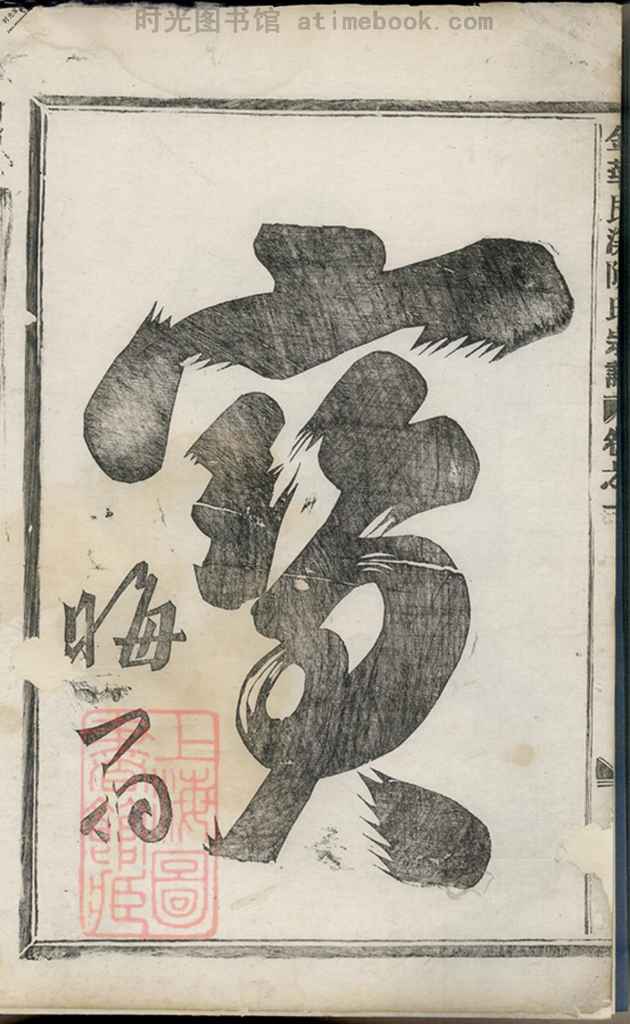 时光图书馆 atimebook.com
金華長溪陳氏宗譜
卷之一
寶
晦翁
上海圖書館藏